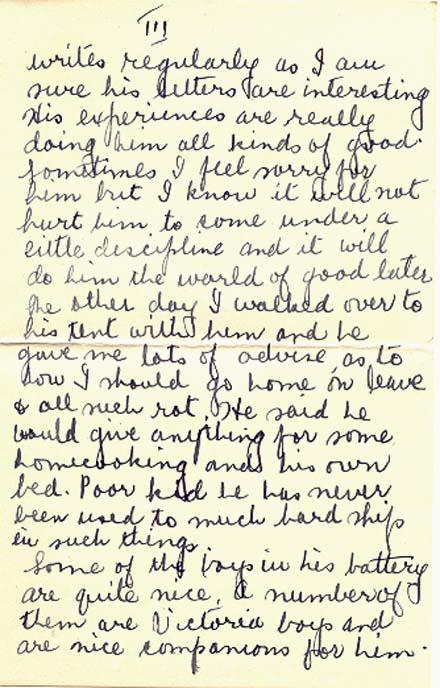 III
writes regularly as I am
sure his letters are interesting
His experiences are really
doing him all kinds of good.
Sometimes I feel sorry for
him but I know it will not
hurt him to come under a
little discipline and it will
do him the world of good later
The other day I walked over to
his tent with him and he
gave me lots of advise as to
how I should go home on leave
& all such rot. He said he
would give anything for some
homecooking and his own
bed. Poor kid he has never
been used to much hard ship
in such things
Some of the boys in his battery
are quite nice. A number of
them are Victoria boys and
are nice companions for him.